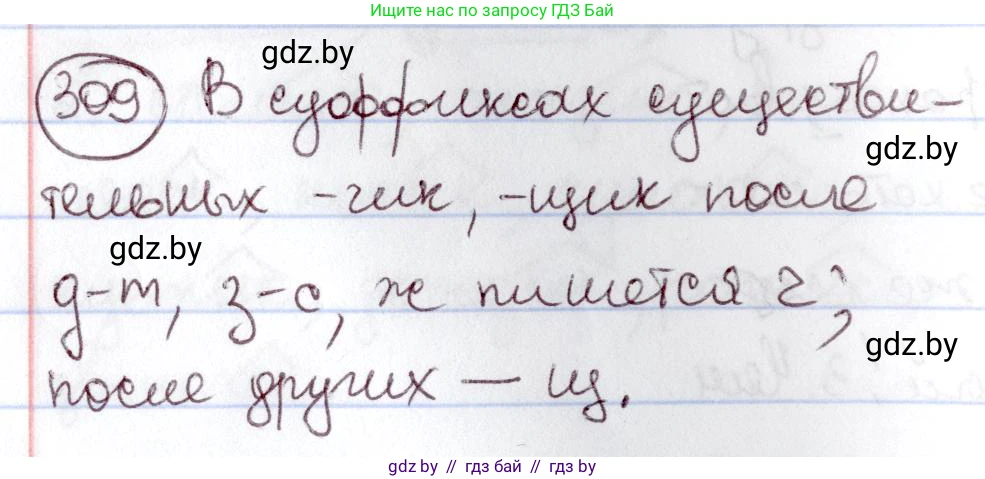 Ищите нас по запросу ГДЗ Бай
gdz.by
309 В суффиксах существи-
gdz.by
тельных -чик, -щик после
gdz.by
д-т, з-с, ж пишется ч;
gdz.by
после других — щ.
gdz.by // гдз бай // гдз by